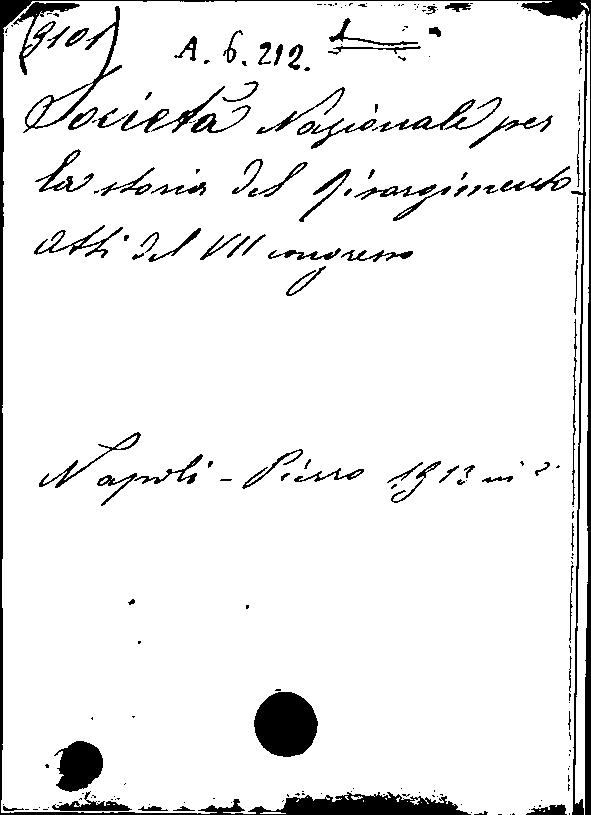 (3101)
A. 6. 212.
Società Nazionale per
la storia del Risorgimento
Atti del VII congresso
Napoli - Pierro 1913 in 8°